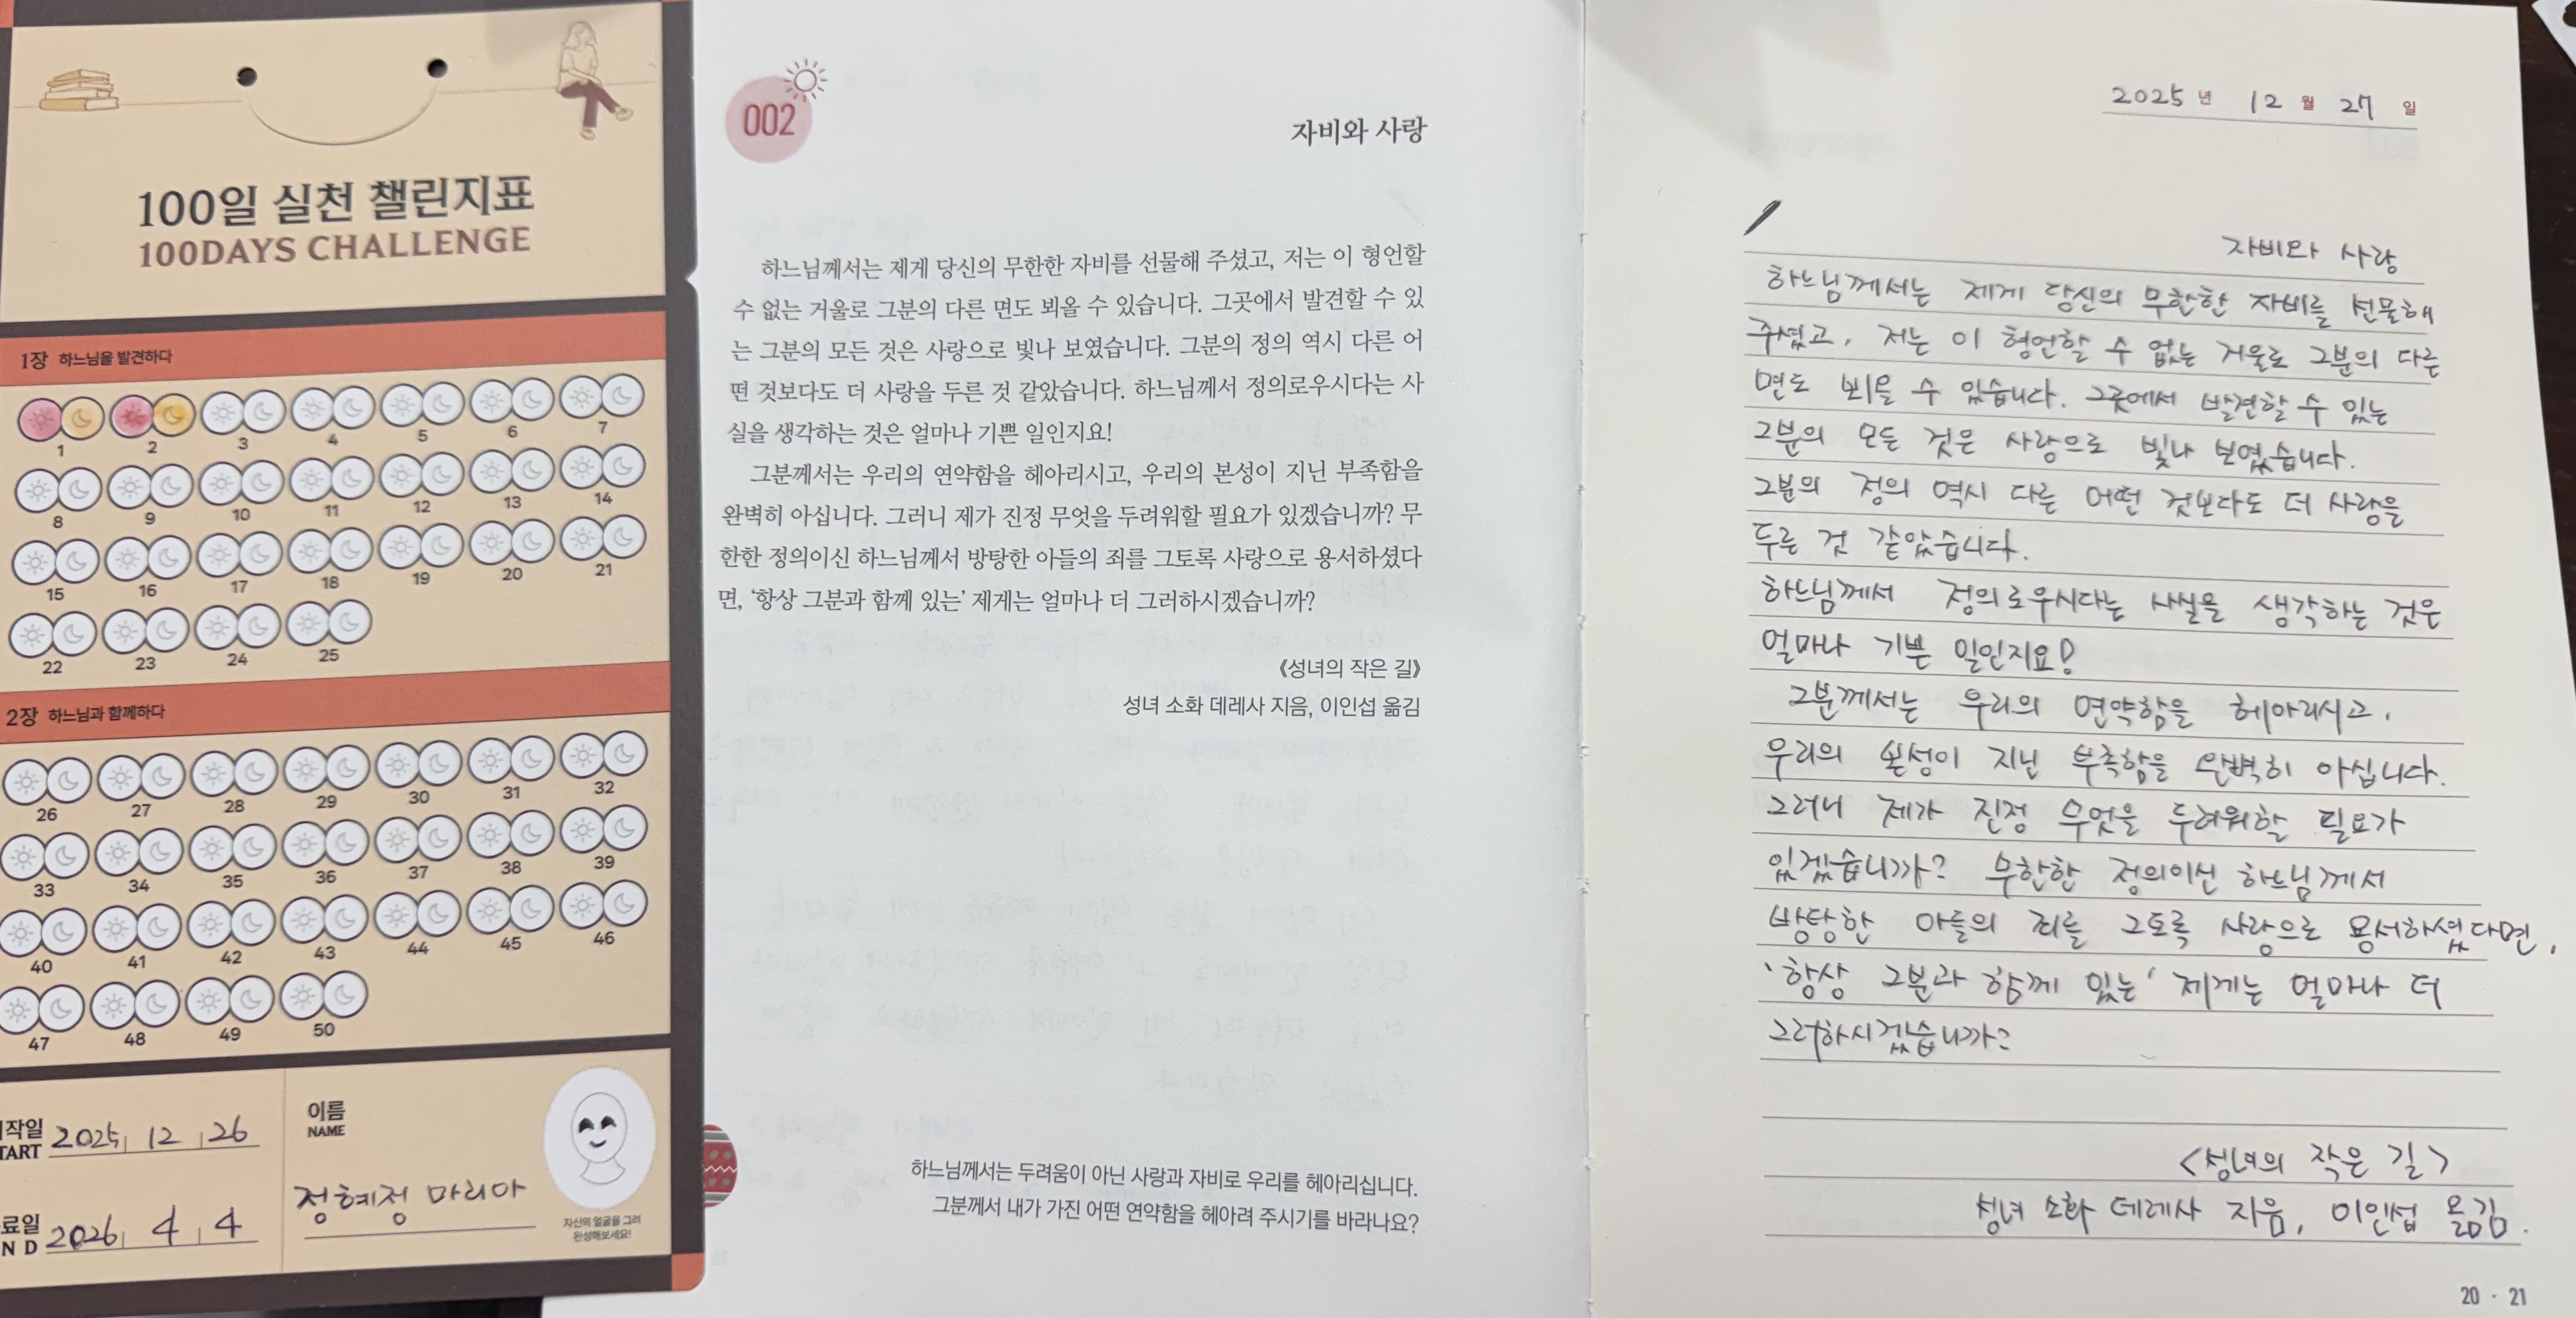 100일 실천 챌린지표
100DAYS CHALLENGE
1장 하느님을 발견하다
1 2 3 4 5 6 7
8 9 10 11 12 13 14
15 16 17 18 19 20 21
22 23 24 25
2장 하느님과 함께하다
26 27 28 29 30 31 32
33 34 35 36 37 38 39
40 41 42 43 44 45 46
47 48 49 50
작일 2025 12 26
TART
료일 2026 4 4
N D
이름
NAME
정혜정 마리아
자신의 얼굴을 그려
완성해보세요!
002
자비와 사랑
하느님께서는 제게 당신의 무한한 자비를 선물해 주셨고, 저는 이 형언할
수 없는 거울로 그분의 다른 면도 뵈올 수 있습니다. 그곳에서 발견할 수 있
는 그분의 모든 것은 사랑으로 빛나 보였습니다. 그분의 정의 역시 다른 어
떤 것보다도 더 사랑을 두른 것 같았습니다. 하느님께서 정의로우시다는 사
실을 생각하는 것은 얼마나 기쁜 일인지요!
그분께서는 우리의 연약함을 헤아리시고, 우리의 본성이 지닌 부족함을
완벽히 아십니다. 그러니 제가 진정 무엇을 두려워할 필요가 있겠습니까? 무
한한 정의이신 하느님께서 방탕한 아들의 죄를 그토록 사랑으로 용서하셨다
면, ‘항상 그분과 함께 있는’ 제게는 얼마나 더 그러하시겠습니까?
《성녀의 작은 길》
성녀 소화 데레사 지음, 이인섭 옮김
하느님께서는 두려움이 아닌 사랑과 자비로 우리를 헤아리십니다.
그분께서 내가 가진 어떤 연약함을 헤아려 주시기를 바라나요?
2025년 12월 27일
자비와 사랑
하느님께서는 제게 당신의 무한한 자비를 선물해
주셨고, 저는 이 형언할 수 없는 거울로 그분의 다른
면도 뵈올 수 있습니다. 그곳에서 발견할 수 있는
그분의 모든 것은 사랑으로 빛나 보였습니다.
그분의 정의 역시 다른 어떤 것보다도 더 사랑을
두른 것 같았습니다.
하느님께서 정의로우시다는 사실을 생각하는 것은
얼마나 기쁜 일인지요!
그분께서는 우리의 연약함을 헤아리시고,
우리의 본성이 지닌 부족함을 완벽히 아십니다.
그러니 제가 진정 무엇을 두려워할 필요가
있겠습니까? 무한한 정의이신 하느님께서
방탕한 아들의 죄를 그토록 사랑으로 용서하셨다면,
'항상 그분과 함께 있는' 제게는 얼마나 더
그러하시겠습니까?
<성녀의 작은 길>
성녀 소화 데레사 지음, 이인섭 옮김.
20 · 21